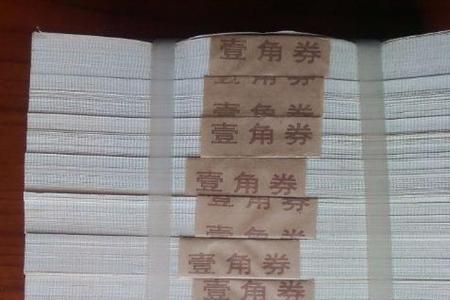 壹角券
壹角券
壹角券
壹角券
壹角券
壹角券
壹角券
壹角券
壹角券